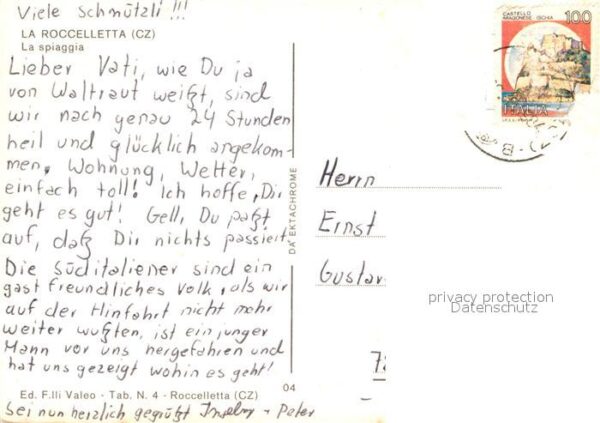 Viele Schmützli !!!
LA ROCCELLETTA (CZ)
La spiaggia
Lieber Vati, wie Du ja
von Waltraut weißt, sind
wir nach genau 24 Stunden
heil und glücklich angekom-
men. Wohnung, Wetter,
einfach toll! Ich hoffe, Dir
geht es gut! Gell, Du paßt
auf, daß Dir nichts passiert
Die Süditaliener sind ein
gastfreundliches Volk, als wir
auf der Hinfahrt nicht mehr
weiter wußten, ist ein junger
Mann vor uns hergefahren und
hat uns gezeigt wohin es geht!
Ed. F.lli Valeo - Tab. N. 4 - Roccelletta (CZ)
04
Sei nun herzlich gegrüßt + Peter
DA EKTACHROME
CASTELLO
ARAGONESE - ISCHIA
100
ITALIA
Herrn
Ernst
Gustav
privacy protection
Datenschutz